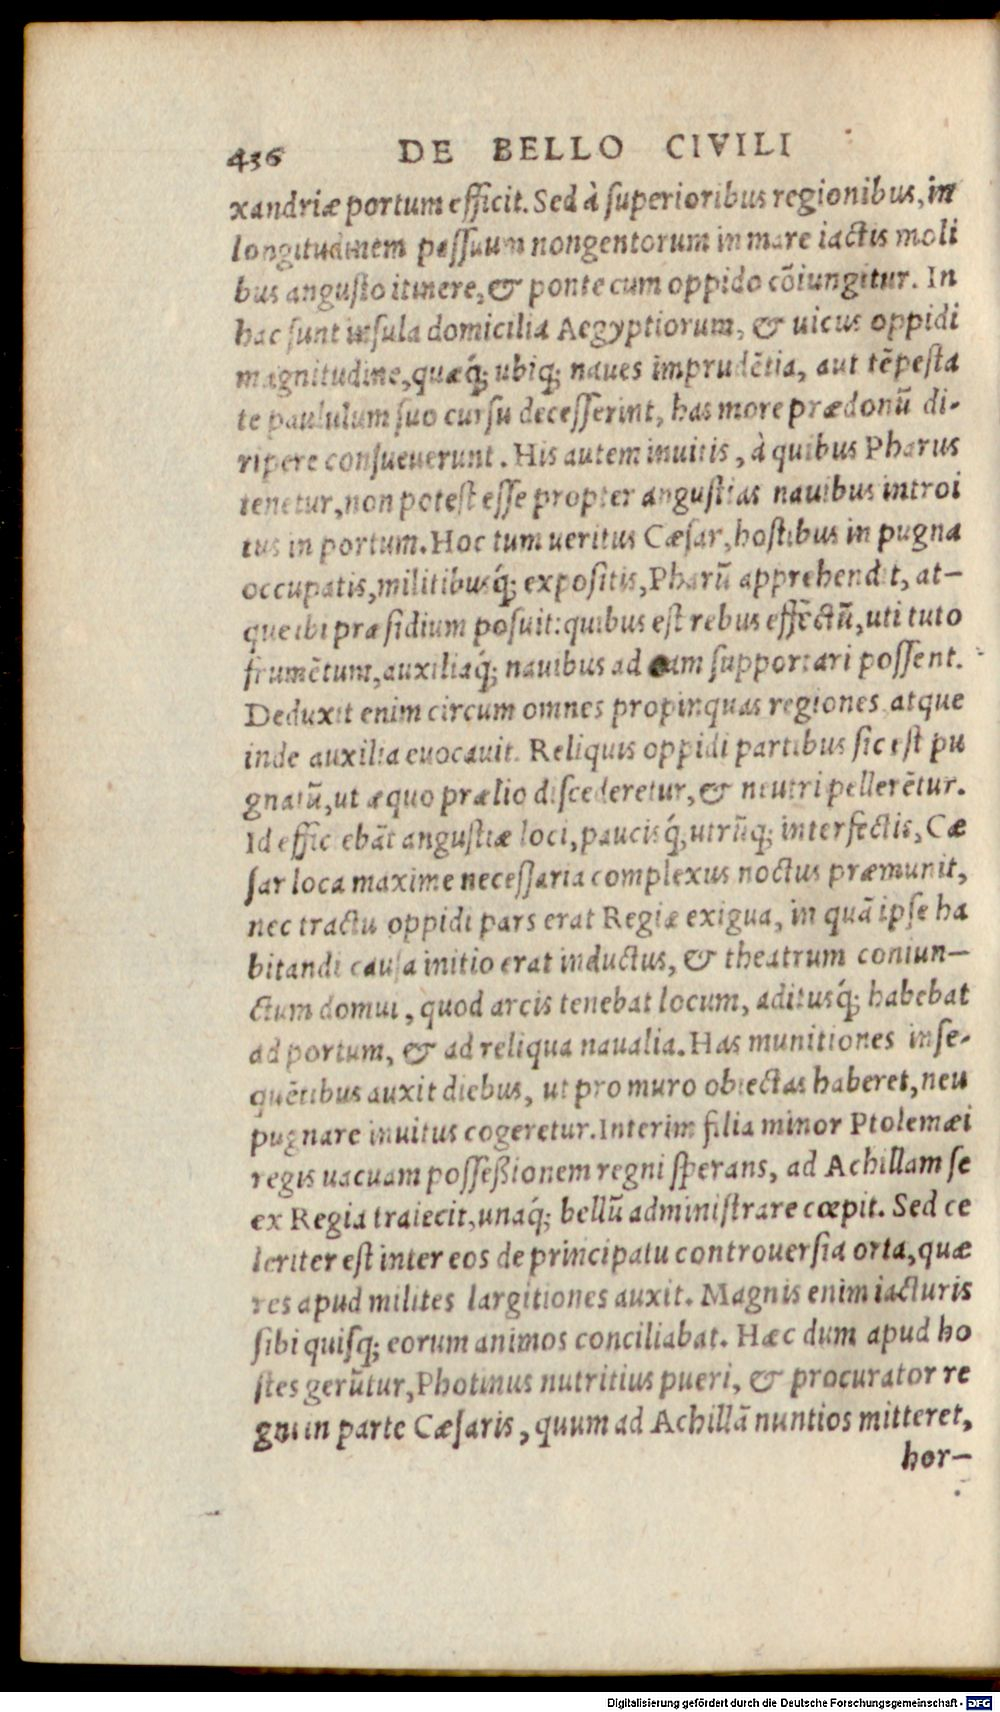 436 DE BELLO CIVILI
xandriæ portum efficit. Sed à ſuperioribus regionibus, in
longitudinem paſſuum nongentorum in mare iactis moli
bus anguſto itinere, & ponte cum oppido cõiungitur. In
hac ſunt inſula domicilia Aegyptiorum, & uicus oppidi
magnitudine, quæq́; ubiq; naues imprudẽtia, aut tẽpeſta
te paululum ſuo curſu deceſſerint, has more prædonũ di-
ripere conſueuerunt. His autem inuitis, à quibus Pharus
tenetur, non poteſt eſſe propter anguſtias nauibus introi
tus in portum. Hoc tum ueritus Cæſar, hoſtibus in pugna
occupatis, militibusq́; expoſitis, Pharũ apprehendit, at-
que ibi præſidium poſuit: quibus eſt rebus effẽctũ, uti tuto
frumẽtum, auxiliaq́; nauibus ad eum ſupportari poſſent.
Deduxit enim circum omnes propinquas regiones atque
inde auxilia euocauit. Reliquis oppidi partibus ſic eſt pu
gnatũ, ut æquo prælio diſcederetur, & neutri pellerẽtur.
Id efficiebãt anguſtiæ loci, paucisq́, utrũq; interfectis, Cæ
ſar loca maxime neceſſaria complexus noctus præmunit,
nec tractu oppidi pars erat Regiæ exigua, in quã ipſe ha
bitandi cauſa initio erat inductus, & theatrum coniun-
ctum domui, quod arcis tenebat locum, aditusq́; habebat
ad portum, & ad reliqua naualia. Has munitiones inſe-
quẽtibus auxit diebus, ut pro muro obiectas haberet, neu
pugnare inuitus cogeretur. Interim filia minor Ptolemæi
regis uacuam poſſeßionem regni ſperans, ad Achillam ſe
ex Regia traiecit, unaq́; bellũ adminiſtrare cœpit. Sed ce
leriter eſt inter eos de principatu controuerſia orta, quæ
res apud milites largitiones auxit. Magnis enim iacturis
ſibi quiſq; eorum animos conciliabat. Hæc dum apud ho
ſtes gerũtur, Photinus nutritius pueri, & procurator re
gni in parte Cæſaris, quum ad Achillã nuntios mitteret,
hor-
Digitalisierung gefördert durch die Deutsche Forschungsgemeinschaft - DFG